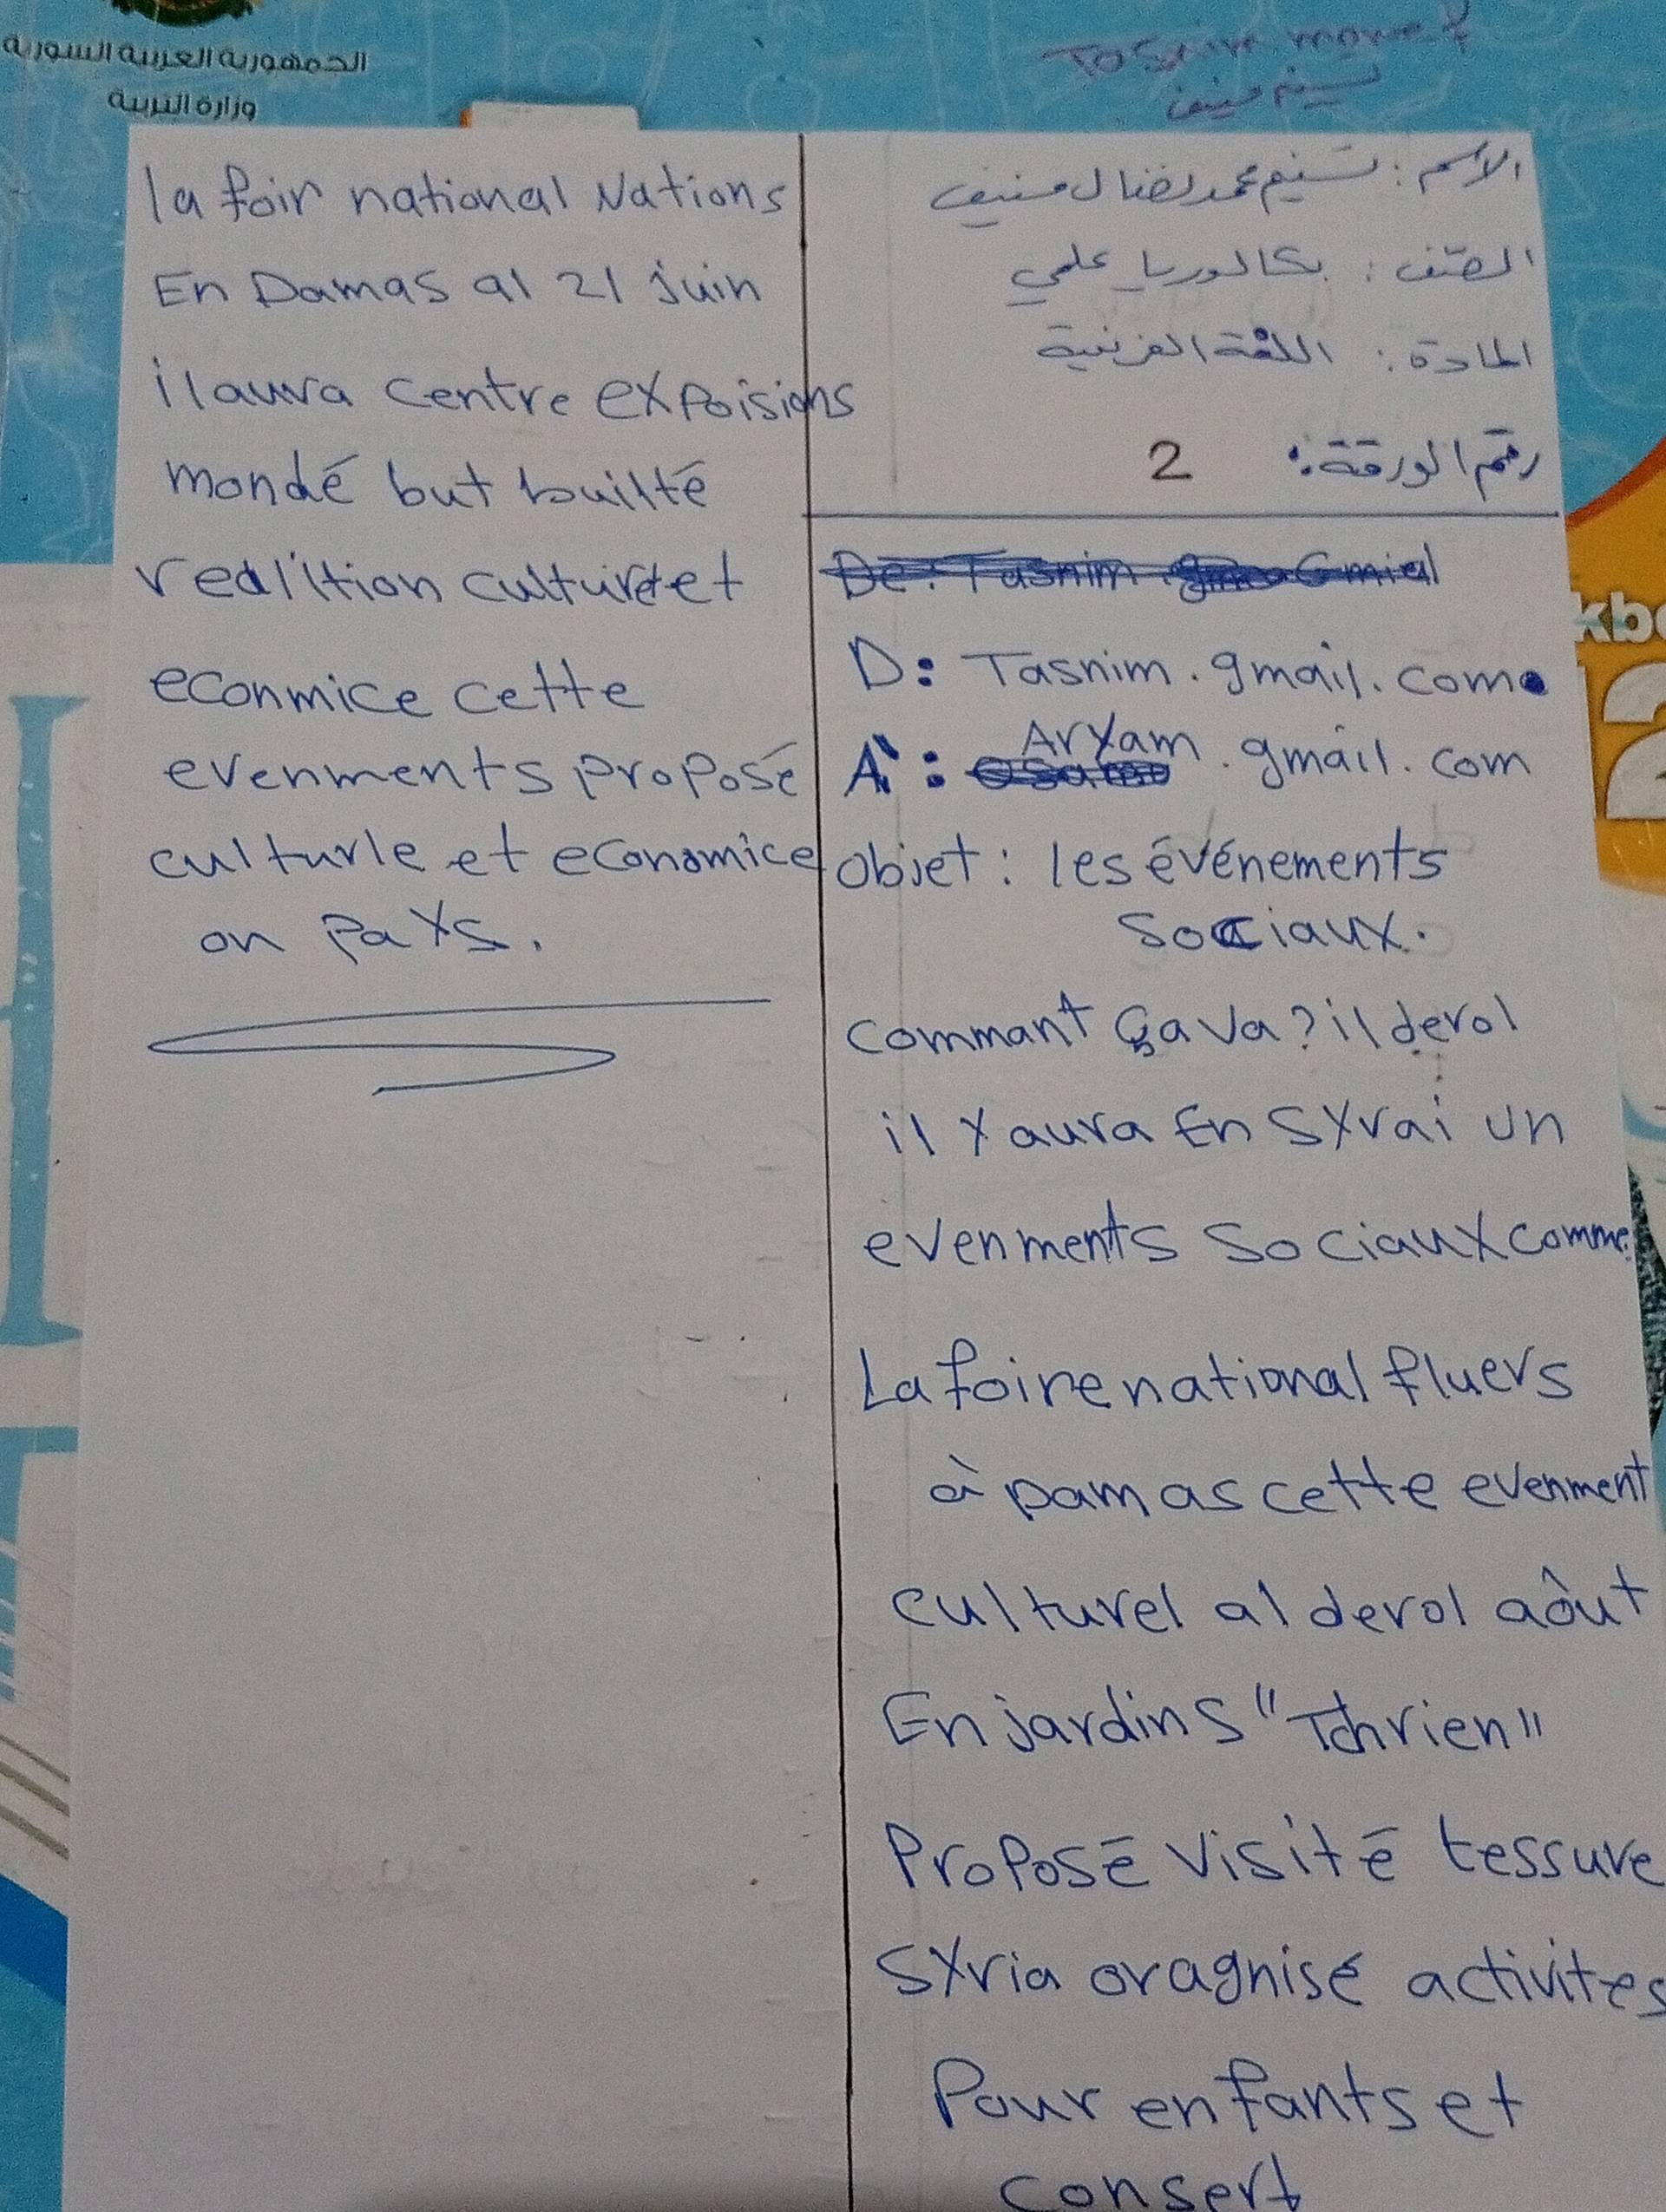 الجمهورية العربية السورية
وزارة التربية
Tasnim
تسنيم منيف
الاسم: تسنيم محمد نضال منيف
الصف: بكالوريا علمي
المادة: اللغة الفرنسية
رقم الورقة: 2
De: Tasnim Gmial
D: Tasnim.gmail.com
A: Aryam.gmail.com
objet: les événements
sociaux.
commant ça va? il derol
il y aura En syrai un
evenments sociaux comme
La foire national fluers
à Damas cette evenment
culturel al derol aôut
En jardins "Tchrien"
Proposé visité tessure
syria oragnisé activites
Pour enfants et
consert
la foir national Nations
En Damas al 21 juin
il aura centre expoisions
mondé but builté
realition culturet et
econmice cette
evenments proposé
culturle et economice
on pays.
kbo
2